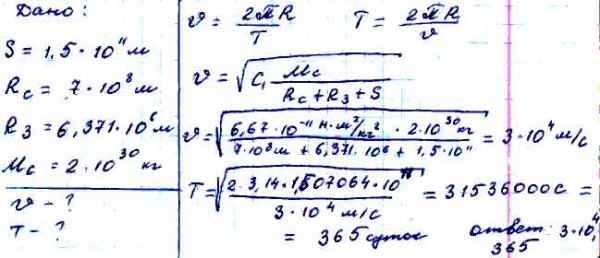 Дано:
S = 1,5 · 10¹¹ м
Rс = 7 · 10⁸ м
Rз = 6,371 · 10⁶ м
Mс = 2 · 10³⁰ кг
v - ?
T - ?
v = 2πR / T    T = 2πR / v
v = √(G Mс / (Rс + Rз + S))
v = √(6,67 · 10⁻¹¹ Н·м²/кг² · 2 · 10³⁰ кг / (7 · 10⁸ м + 6,371 · 10⁶ + 1,5 · 10¹¹)) = 3 · 10⁴ м/с
T = √(2 · 3,14 · 1,507064 · 10¹¹ / (3 · 10⁴ м/с)) = 31536000 с =
= 365 суток    ответ: 3·10⁴,
365